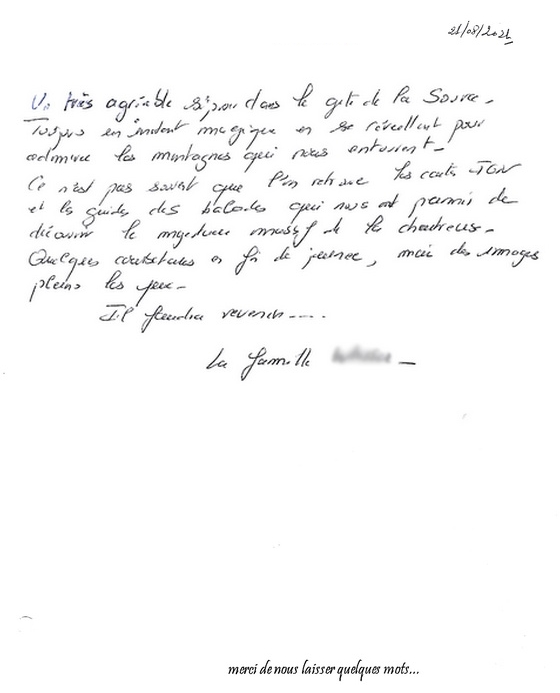 21/08/2021
Un très agréable séjour dans le gite de la Source.
Toujours en instant magique en se réveillant pour
admirer les montagnes qui nous entourent.
Ce n'est pas souvent que l'on retrouve les cartes IGN
et les guides des balades qui nous ont permis de
découvrir le majestueux massif de la chartreuse.
Quelques courbatures en fin de journée, mais des images
pleins les yeux.
Il faudra revenir....
La famille
merci de nous laisser quelques mots...